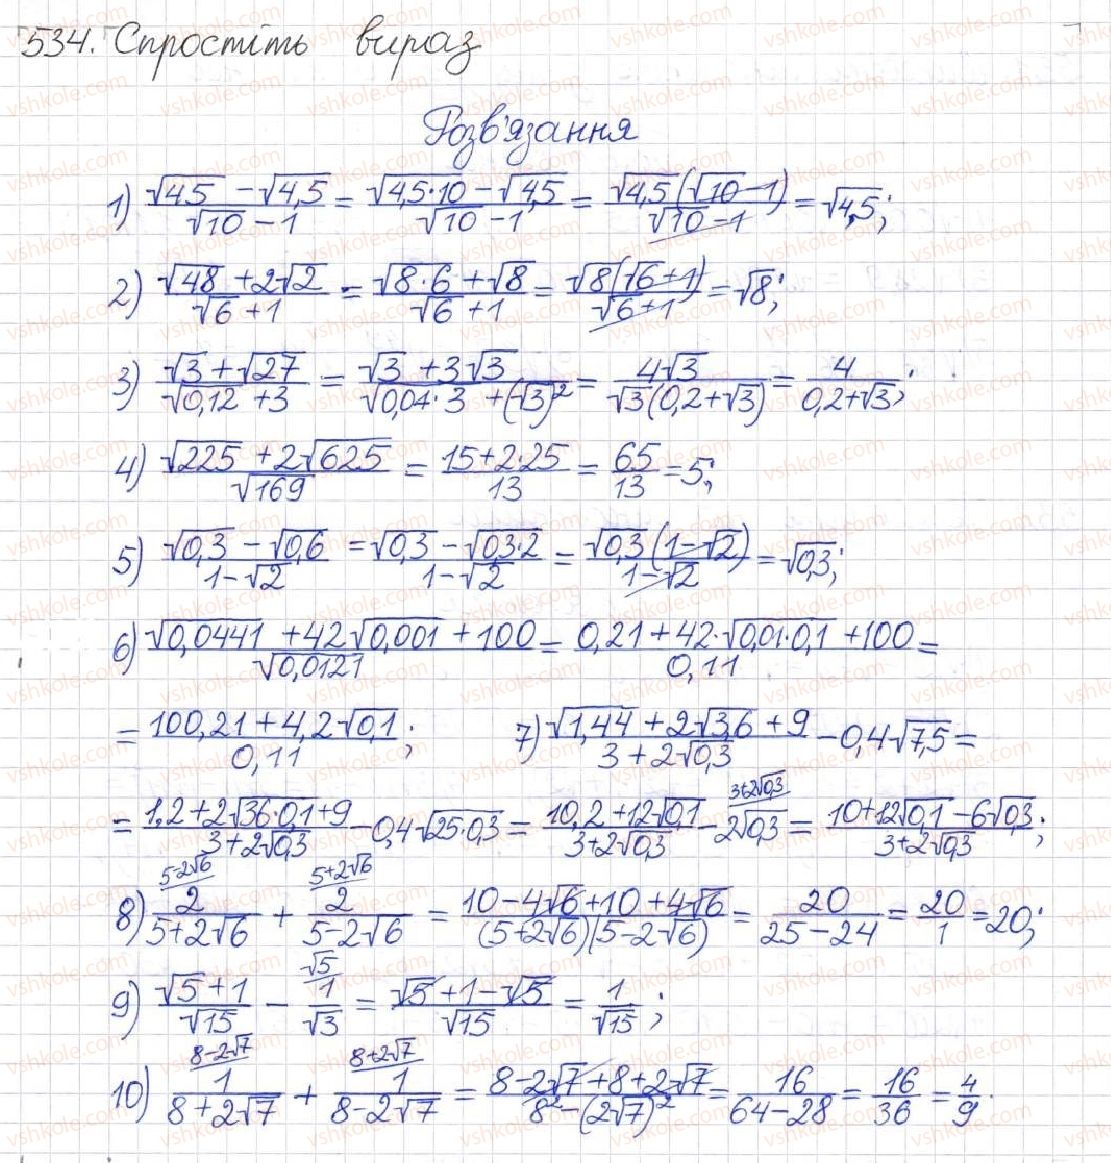 534. Спростіть вираз
Розв'язання
1) (√45 − √4,5)/(√10 − 1) = (√(4,5·10) − √4,5)/(√10 − 1) = (√4,5(√10 − 1))/(√10 − 1) = √4,5;
2) (√48 + 2√2)/(√6 + 1) = (√(8·6) + √8)/(√6 + 1) = (√8(√6 + 1))/(√6 + 1) = √8;
3) (√3 + √27)/(√0,12 + 3) = (√3 + 3√3)/(√(0,04·3) + (√3)²) = 4√3/(√3(0,2 + √3)) = 4/(0,2 + √3);
4) (√225 + 2√625)/√169 = (15 + 2·25)/13 = 65/13 = 5;
5) (√0,3 − √0,6)/(1 − √2) = (√0,3 − √(0,3·2))/(1 − √2) = (√0,3(1 − √2))/(1 − √2) = √0,3;
6) (√0,0441 + 42√0,001 + 100)/√0,0121 = (0,21 + 42·√(0,01·0,1) + 100)/0,11 =
= (100,21 + 4,2√0,1)/0,11; 7) (√1,44 + 2√3,6 + 9)/(3 + 2√0,3) − 0,4√7,5 =
= (1,2 + 2√(36·0,1) + 9)/(3 + 2√0,3) − 0,4√(25·0,3) = (10,2 + 12√0,1)/(3 + 2√0,3) − 2√0,3 (3+2√0,3) = (10 + 12√0,1 − 6√0,3)/(3 + 2√0,3);
8) 2/(5 + 2√6) (5−2√6) + 2/(5 − 2√6) (5+2√6) = (10 − 4√6 + 10 + 4√6)/((5 + 2√6)(5 − 2√6)) = 20/(25 − 24) = 20/1 = 20;
9) (√5 + 1)/√15 − 1/√3 (√5) = (√5 + 1 − √5)/√15 = 1/√15;
10) 1/(8 + 2√7) (8−2√7) + 1/(8 − 2√7) (8+2√7) = (8 − 2√7 + 8 + 2√7)/(8² − (2√7)²) = 16/(64 − 28) = 16/36 = 4/9.